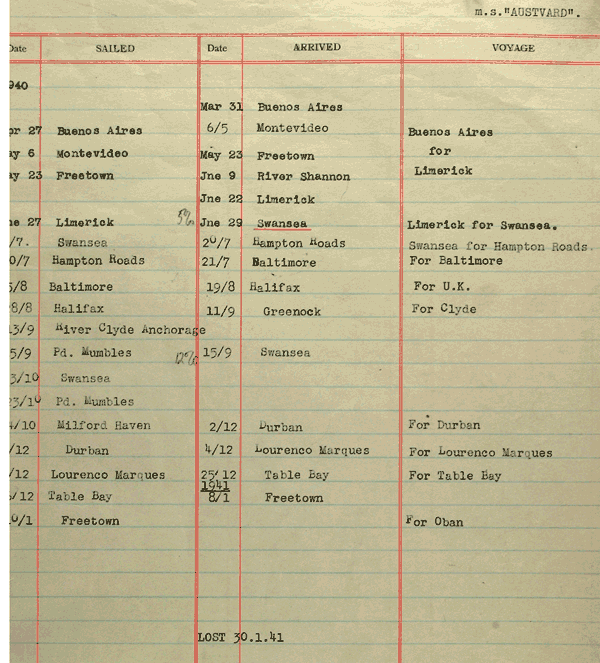 m.s."AUSTVARD".
Date SAILED Date ARRIVED VOYAGE
940
Mar 31 Buenos Aires
pr 27 Buenos Aires 6/5 Montevideo Buenos Aires
ay 6 Montevideo May 23 Freetown for
ay 23 Freetown Jne 9 River Shannon Limerick
Jne 22 Limerick
ne 27 Limerick 5% Jne 29 Swansea Limerick for Swansea.
/7. Swansea 20/7 Hampton Roads Swansea for Hampton Roads.
0/7 Hampton Roads 21/7 Baltimore For Baltimore
5/8 Baltimore 19/8 Halifax For U.K.
8/8 Halifax 11/9 Greenock For Clyde
13/9 River Clyde Anchorage
5/9 Pd. Mumbles 12% 15/9 Swansea
3/10 Swansea
23/10 Pd. Mumbles
4/10 Milford Haven 2/12 Durban For Durban
/12 Durban 4/12 Lourenco Marques For Lourenco Marques
/12 Lourenco Marques 25/12 Table Bay For Table Bay
1941
/12 Table Bay 8/1 Freetown
10/1 Freetown For Oban
LOST 30.1.41